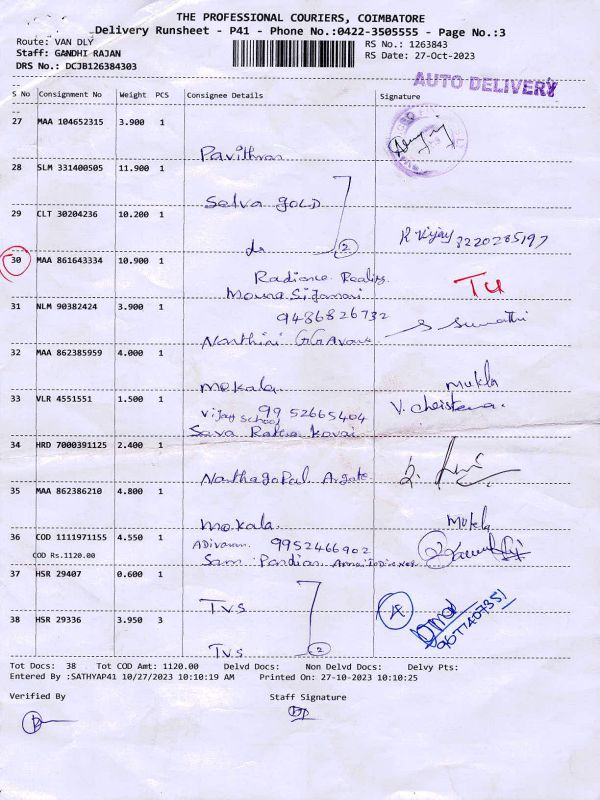 THE PROFESSIONAL COURIERS, COIMBATORE
Delivery Runsheet - P41 - Phone No.:0422-3505555 - Page No.:3
Route: VAN DLY
RS No.: 1263843
Staff: GANDHI RAJAN
RS Date: 27-Oct-2023
DRS No.: DCJB126384303
AUTO DELIVERY
S No Consignment No Weight PCS Consignee Details Signature
27 MAA 104652315 3.900 1
Pavithran
28 SLM 331400505 11.900 1
Selva GOLD
29 CLT 30204236 10.200 1
do 2 R Vijay 8220285197
30 MAA 861643334 10.900 1
Radiance Reality
9486826732
31 NLM 90382424 3.900 1
S Sumathi
Nanthini
32 MAA 862385959 4.000 1
mekala Mukla
33 VLR 4551551 1.500 1
Vijay School 9952665404 V. Cheistena
Kovai
34 HRD 7000391125 2.400 1
Nanthagopal
35 MAA 862386210 4.800 1
mekala Mukla
36 COD 1111971155 4.550 1
COD Rs.1120.00
9952466902
Sam Pandian
37 HSR 29407 0.600 1
TVS
4
9077407351
38 HSR 29336 3.950 3
TVS 2
Tot Docs: 38 Tot COD Amt: 1120.00 Delvd Docs: Non Delvd Docs: Delvy Pts:
Entered By :SATHYAP41 10/27/2023 10:10:19 AM Printed On: 27-10-2023 10:10:25
Verified By Staff Signature